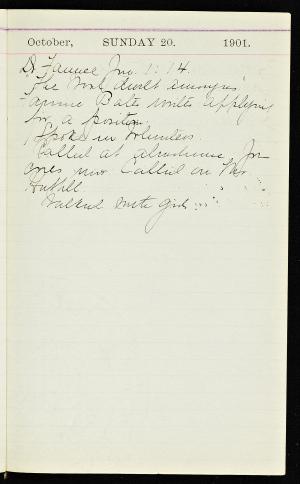 October, SUNDAY 20. 1901.
Dr Faunce Jno. 1:14.
The Word dwelt among us
Fannie Bates writes applying
for a position.
Spoke in Volunteers
Called at almshouse,
Called on Mrs

Walked with girls